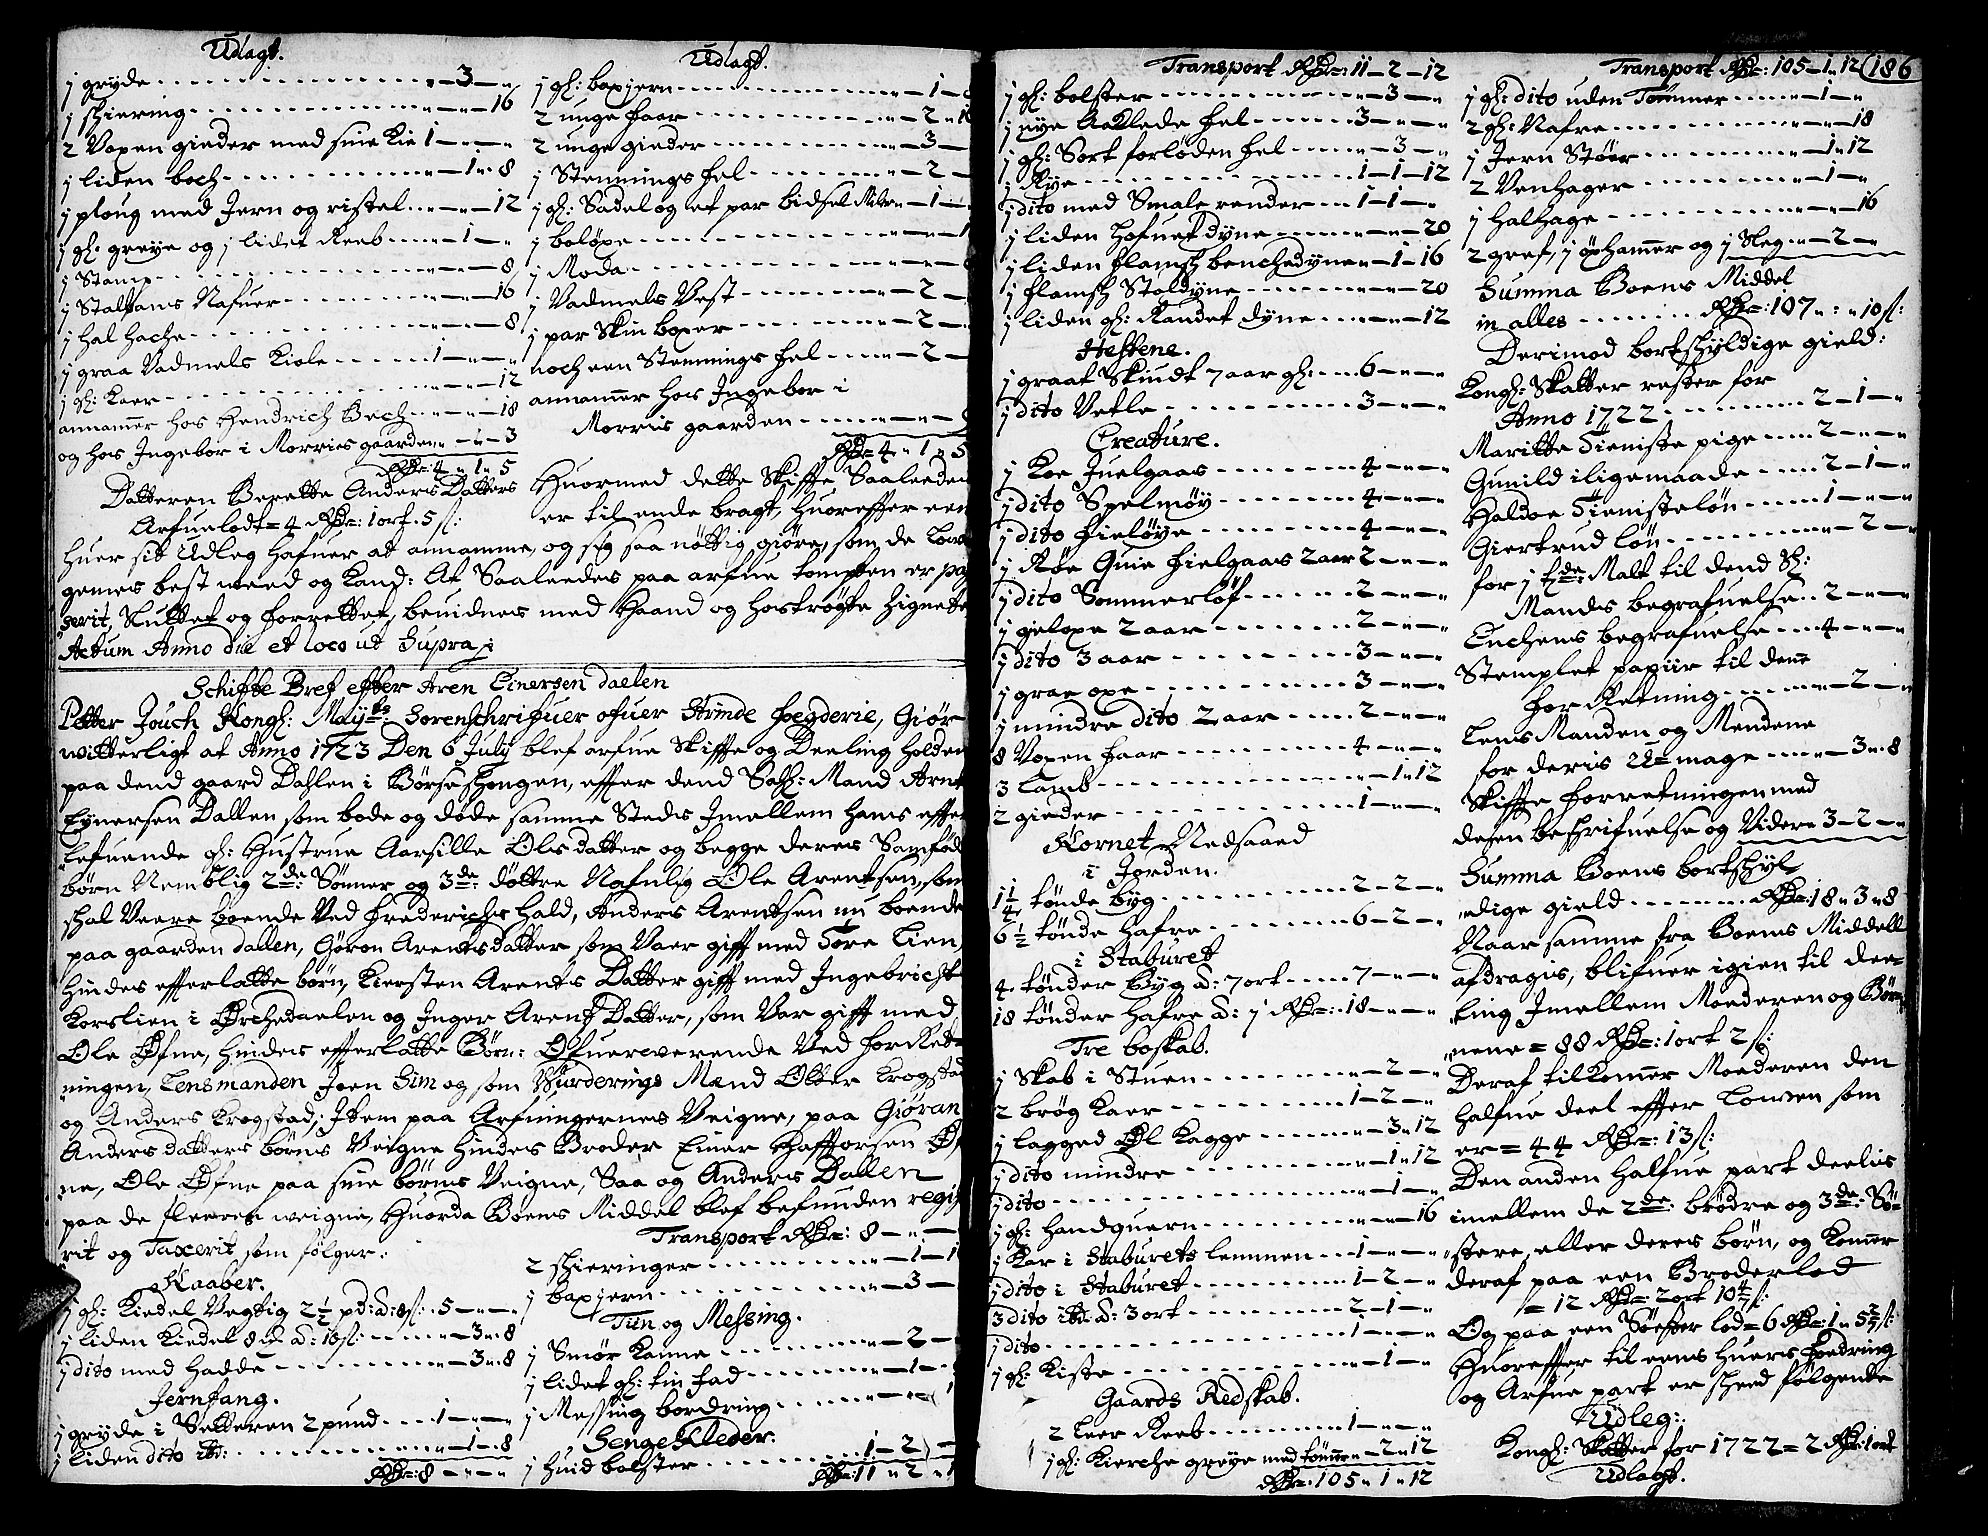 Udlagt.
j gryde - 3 -
j schiering - 16
2 Voxen gieder med sine Kie 1 -
j liden boch - 1 - 8
j ploug med Jern og ristel - 12
j gl: greye og j lidet Reeb - 1 -
j Stamp - 8
j Staltans Nafuer - 16
j hal hache - 8
j graa Vadmels Kiole 1 -
j gl: Kaer - 12
annamer hos Hendrich Bech - 18
og hos Ingebor i Morries gaarden - 3
Rdr 4 - 1 - 5
Datteren Berette Anders Datters
Arfuelodt = 4 Rdr: 1 ort. 5 s:
Udlagt.
j gl: boxjern - 1 -
2 unge faar - 2 -
2 unge gieder - 3 -
j Stennings fel - 2 -
j gl: Sadel og et par bidsel - 1 -
j boløxe -
j Moda -
j Vadmels Vest - 2 -
j par Skin boxer - 2 -
noch een Stennings fel - 2 -
annamer hos Ingebor i
Morris gaarden -
Rdr 4 - 1 - 5
Huormed dette Skiffte Saaleedes
er til ende bragt, huorefter een
huer sit Udleg hafuer at annamme, og sig saa nöttig giöre, som de
gemes best weed og Kand: At Saaleedes paa arfue tompten er pas
serit, Sluttet og forrettet, beuidnes med Haand og hostrøgte Zignette
Actum Anno die et loco ut Supra
Schifte Bref efter Aren Einersen daelen
Petter Jouch Kongl: Mayts Sorenschrifuer ofuer Strinde fogderie, Giør
witterligt at Anno 1723 Den 6 July blef arfue Skiffte og Deeling holden
paa dend gaard Dahlen i Börseschongen, effter dend Sahl: Mand Arnt
Eynersen Dallen som bode og døde samme Steds Jmellem hans effter
lefuende gl: Hustrue Aarsille Ols datter og begge deres Samföde
börn Nemblig 2de Sönner og 3de döttre Nafnlig Ole Arentsen, som
schal Veere boende Ved Frederichs hald, Anders Arentsen nu boende
paa gaarden dallen, Göron Arentsdatter som Vaer gifft med Tore Lien
hindes effterlatte börn, Kiersten Arents Datter gifft med Ingebricht
Korslien i Örchedaelen og Inger Arents Datter, som Var gifft med
Ole Öfne, hindes effterlatte Börn: Ofuerwerende Ved forRet-
ningen, Lensmanden Joen Sim og som Vurderings Mænd Olle Krogstad
og Anders Krogstad; Item paa Arfuingernes Veigne, paa Giøran
Anders datters börns Veigne hindes Broder Einer Hafforsen
ne, Ole Öfne paa sine börns Veigne, Saa og Anders Dallen
paa de fleeres weigne, Huorda Boens Middel blef befunden regist
rit og Taxerit som fölger:
Kaaber.
j gl: Kiedel Vegtig 2½ pd: - 5 -
j liden Kiedel - 3 - 8
j dito med hadde - 3 - 8
Jernfang.
j gryde i Setteren 2 pund - 1 -
j liden dito - 1 - 8
Rdr 8 -
Transport Rdr: 8 -
2 schieringer - 1 -
j boxjern - 3 -
Tin og Messing.
j Smør Kanne - 2 -
j lidet gl: tin fad - 1 -
j Messing bordring -
Senge Kleder.
j Huid bolster - 1 - 2
Rdr: 11 - 2 -
Transport Rdr: 11 - 2 - 12
j gl: bolster - 3 -
j nye Aaklede fel - 3 -
j gl: Sort forløden fel - 3 -
j Rye - 1 - 1 - 12
j dito med Smale render - 1 - 1 -
j liden hofuet dyne - 20
j liden flamsch benchedyne - 1 - 16
j flamsch Stoldyne - 20
j liden gl: Randet dyne - 12
Hestene.
j graat Skiudt 7 aar gl: - 6 -
j dito Vetle - 3 -
Creature.
j Koe Juelgaas - 4 -
j dito Spelmöy - 4 -
j dito Fieløye - 4 -
j Røe Quie fielgaas 2 aar 2 -
j dito Sommerlöf - 2 -
j geloxe 2 aar - 2 -
j dito 3 aar - 3 -
j grae oxe - 3 -
j mindre dito 2 aar - 2 -
8 Voxen faar - 4 -
3 Lamb - 1 - 12
2 gieder - 1 -
Kornet Nedsaaed
i Jorden.
1¼ tønde byg - 2 - 2 -
6½ tønde hafre - 6 - 2 -
i Staburet
4 tønder Byg a: 7 ort - 7 -
18 tønder hafre a: 1 Rdr: - 18 -
Tre boskab.
j Skab i Stuen - 2 -
2 brög Kaer - 1 - 2 -
j lagged Öl Kagge - 3 - 12
j dito mindre - 1 - 12
j dito - 1 -
j gl: handquern - 16
j Kar i Staburets lemmen - 1 -
j dito i Staburet - 1 - 2 -
3 dito ibd: a: 3 ort - 2 - 1 -
j dito - 1 -
j gl: Kiste - 1 -
Gaards Redskab.
2 Leer Reeb - 1 -
j gl: Kierche greye med tømme - 2 - 12
Rdr: 105 - 1 - 12
Transport Rdr: 105 - 1 - 12 186
j gl: dito uden Tømmer - 1 -
2 gl: Nafre - 18
j Jern Stöer - 1 - 12
2 Venhager - 1 -
j halhage - 16
2 gref, j öxhamer og j Sleg - 2 -
Summa Boens Middel
in alles - Rdr: 107 - 10 s:
Derimod bortschyldige gield:
Kongl: Skatter rester for
Anno 1722 - 2 - 1 -
Maritte Tieniste pige - 2 -
Gunild iligemaade - 2 - 1 -
Haldoe Tienisteløn - 1 -
Giertrud løn - 2 -
for j tde: Malt til dend Sl:
Mands begrafuelse - 2 -
Enchens begrafuelse - 4 -
Stemplet papiir til denne
forRetning - 2 -
Lens Manden og Mendene
for deris umage - 3 - 8
Skiffte forretningen med
desen beschrifuelse og Videre 3 - 2 -
Summa Boens bortschyl
dige gield - Rdr: 18 - 3 - 8
Naar samme fra Boens Middell
afdragis, blifuer igien til dee-
ling Jmellem Moederen og Bör-
nene = 88 Rdr: 1 ort 2 s:
Deraf tilkommer Moederen den
halfue deel effter Lowen som
er = 44 Rdr: 13 s:
Den anden halfue part deelis
imellem de 2de: brödre og 3de: Sö-
stere, eller deres börn, og Komer
deraf paa een Broderlod
= 12 Rdr: 2 ort 10 4/7 s:
Og paa een Søster lod = 6 Rdr: 1 - 5 2/7 s:
Huoreffter til eens huers fordring
og Arfue part er scheed følgende
Udleg:
Kongl: Skatter for 1722 = 2 Rdr: 1 ort
Udlagt.